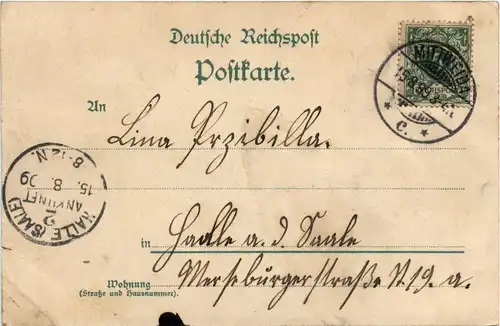 Deutsche Reichspost
Postkarte.
MITTWEIDA
15.8.
* C. *
REICHSPOST
An
Lina Przibilla.
HALLE (SAALE)
ANKUNFT
2
15. 8. 99
8-12 N.
in Haalle a. d. Saale
Wohnung
(Straße und Hausnummer).
Merseburgerstraße N.19. a.